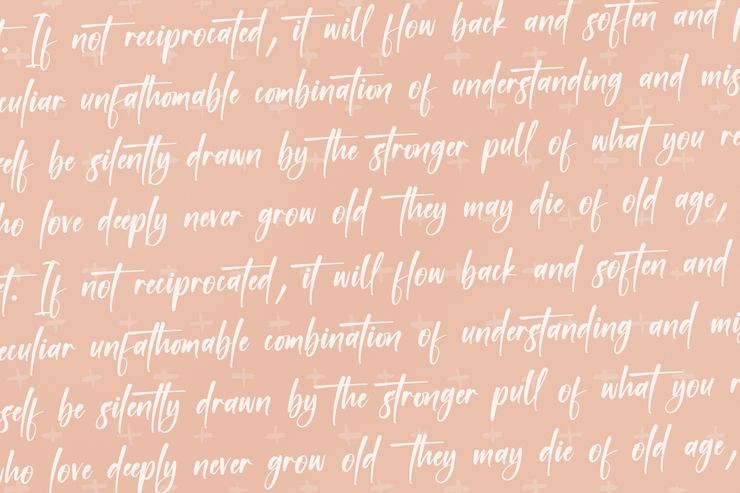 t. If not reciprocated, it will flow back and soften and p
culiar unfathomable combination of understanding and mis
self be silently drawn by the stronger pull of what you re
ho love deeply never grow old they may die of old age,
t. If not reciprocated, it will flow back and soften and
eculiar unfathomable combination of understanding and mi
self be silently drawn by the stronger pull of what you r
who love deeply never grow old they may die of old age,